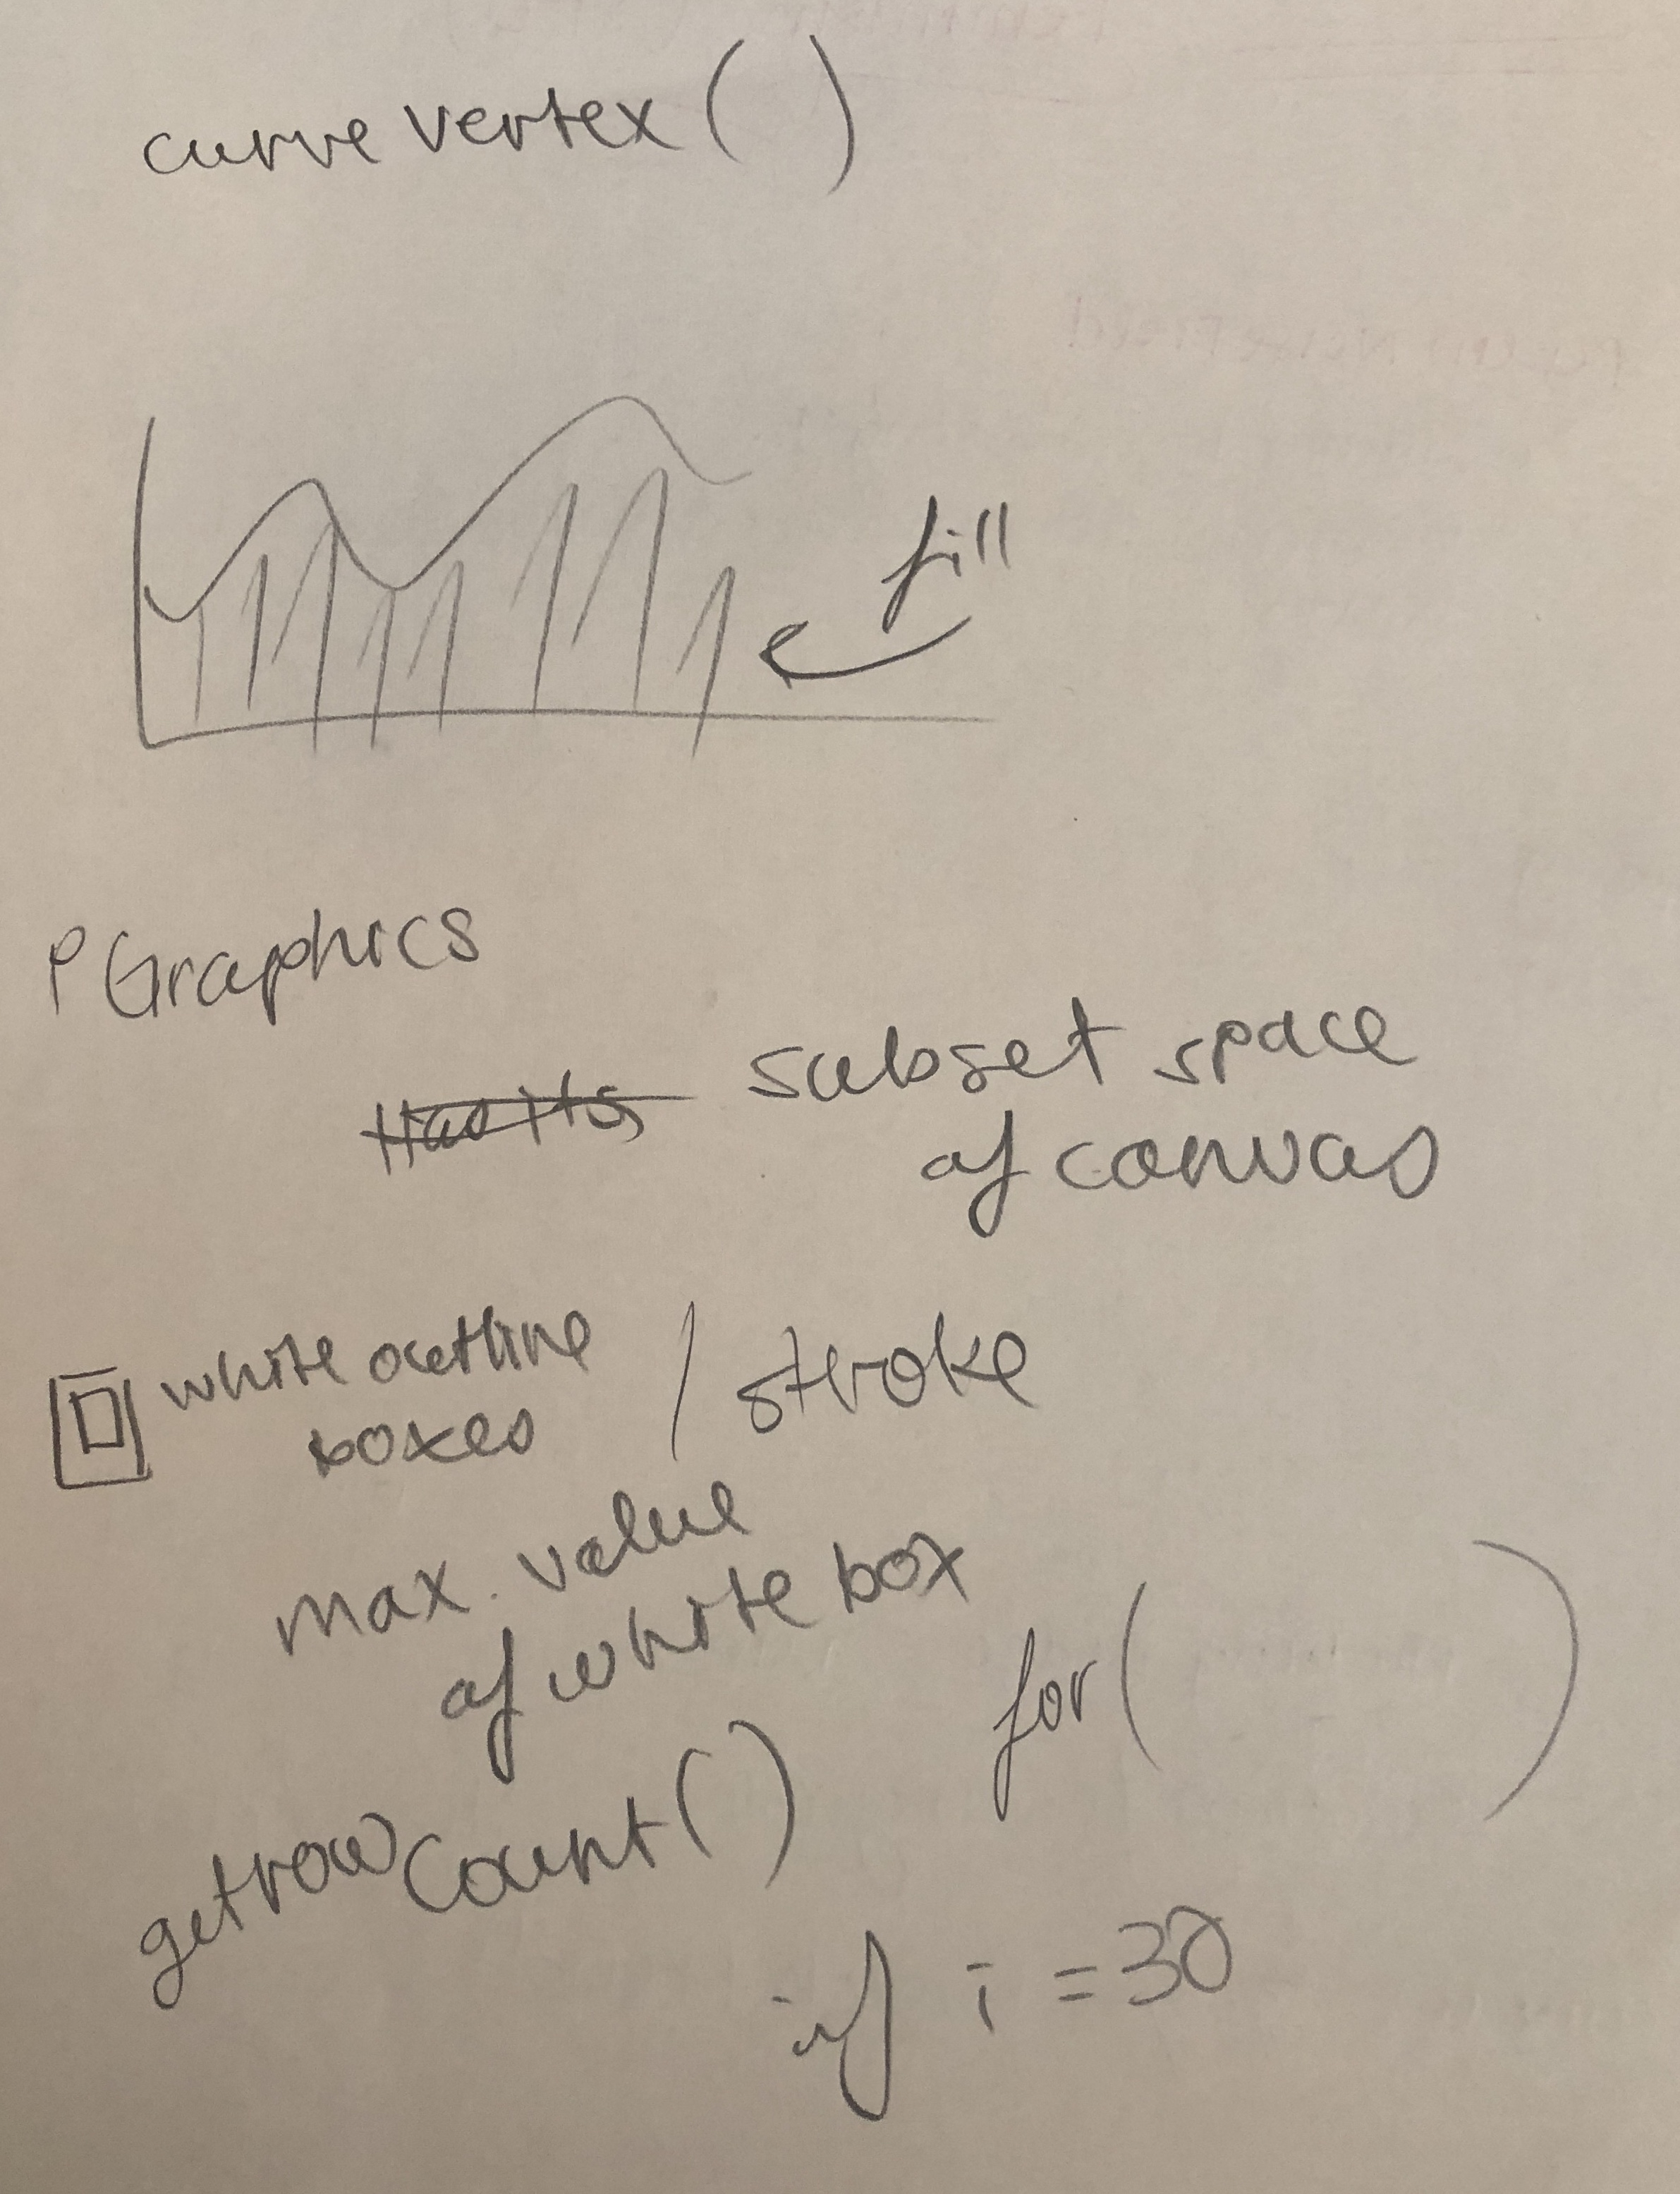 curve vertex ( )
fill
PGraphics
subset space
of canvas
white outline / stroke
boxes
max. value
of white box
for( )
getrowCount()
if i = 30